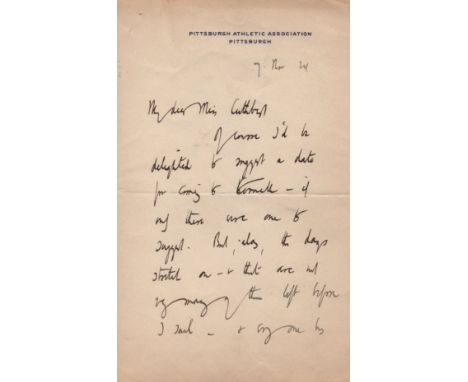 PITTSBURGH ATHLETIC ASSOCIATION
PITTSBURGH
7. Nov 24
My dear Miss Cuthbert
Of course I'd be
delighted to suggest a date
for coming to Cornell – if
only there were one to
suggest. But, alas, the days
stretch on – & there are not
very many of them left before
I sail – & every one is